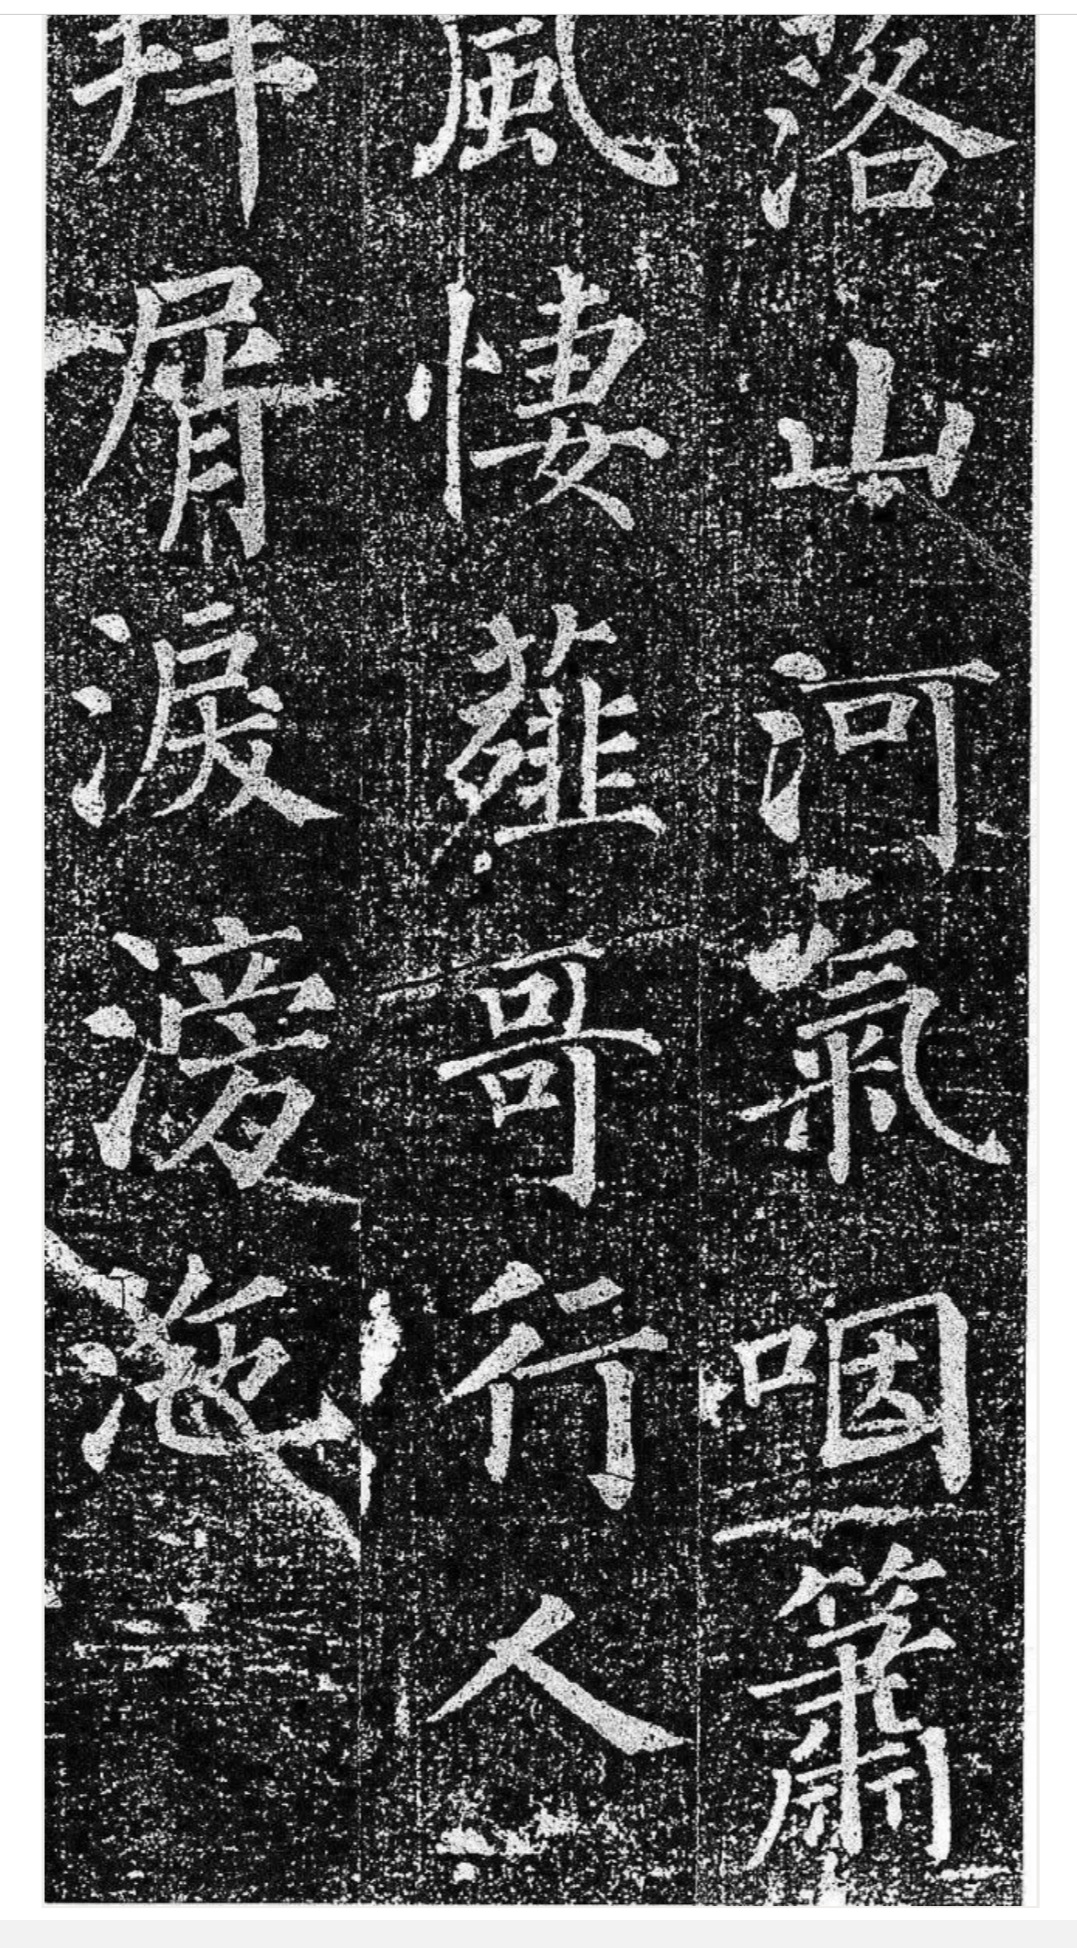 落山河氣咽簫
風悽薤哥行人
拜屑淚滂沲